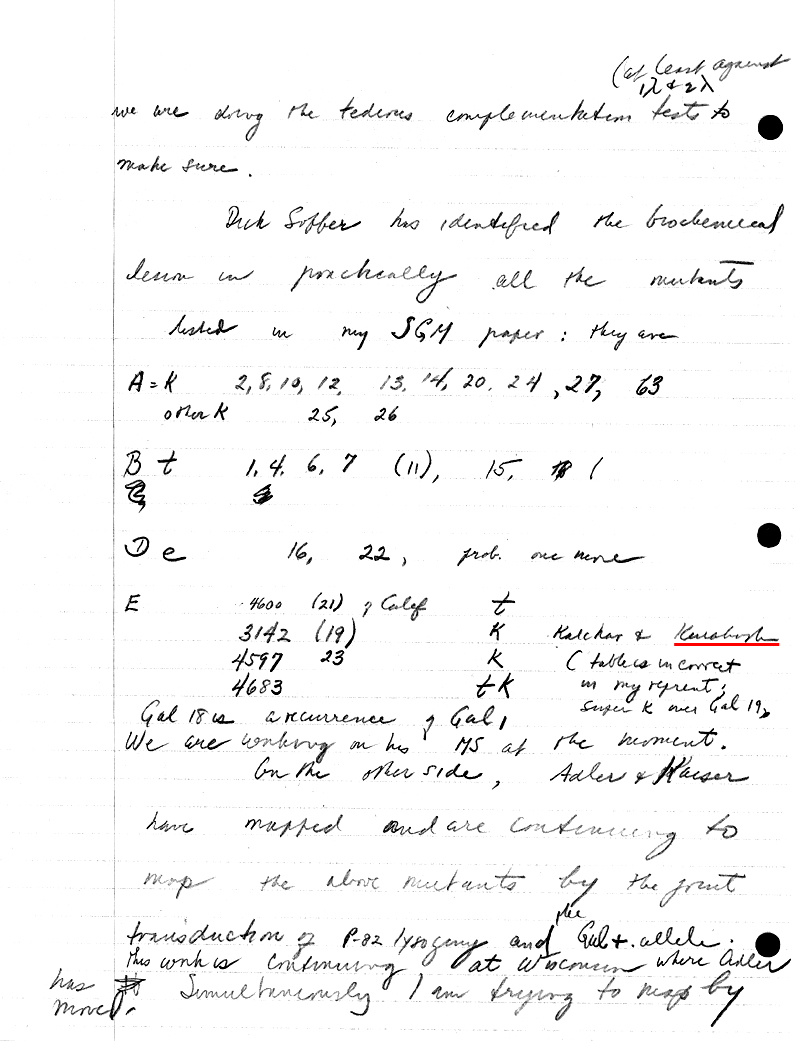 (at least against
1λ & 2λ
we are doing the tedious complementation tests to
make sure.
Dick Soffer has identified the biochemical
lesion in practically all the mutants
listed in my SGM paper: they are
A = K 2, 8, 10, 12, 13, 14, 20, 24, 27, 63
other K 25, 26
B t 1, 4, 6, 7 (11), 15, (
D e 16, 22, prob. one more
E 4600 (21) of Calef t
3142 (19) K Kalckar &
4597 23 K (table is incorrect
4683 t K in my reprint;
super K over Gal 19)
Gal 18 is a recurrence of Gal 1
We are working on his MS at the moment.
On the other side, Adler & Kaiser
have mapped and are continuing to
map the above mutants by the joint
transduction of P-82 lysogeny and the Gal+ allele.
This work is continuing at Wisconsin where Adler
has moved. Simultaneously I am trying to map by